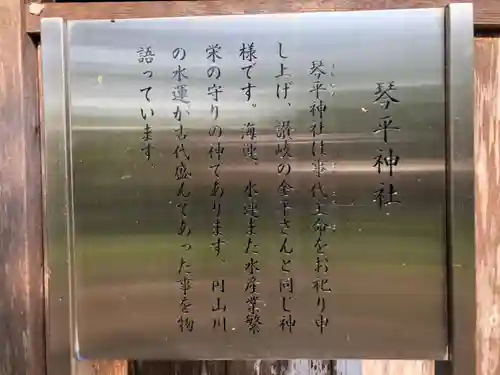 琴平神社
琴平神社は事代主命をお祀り申
し上げ、讃岐の金平さんと同じ神
様です。海運、水運また水産業繁
栄の守りの神であります。円山川
の水運が古代盛んであった事を物
語っています。